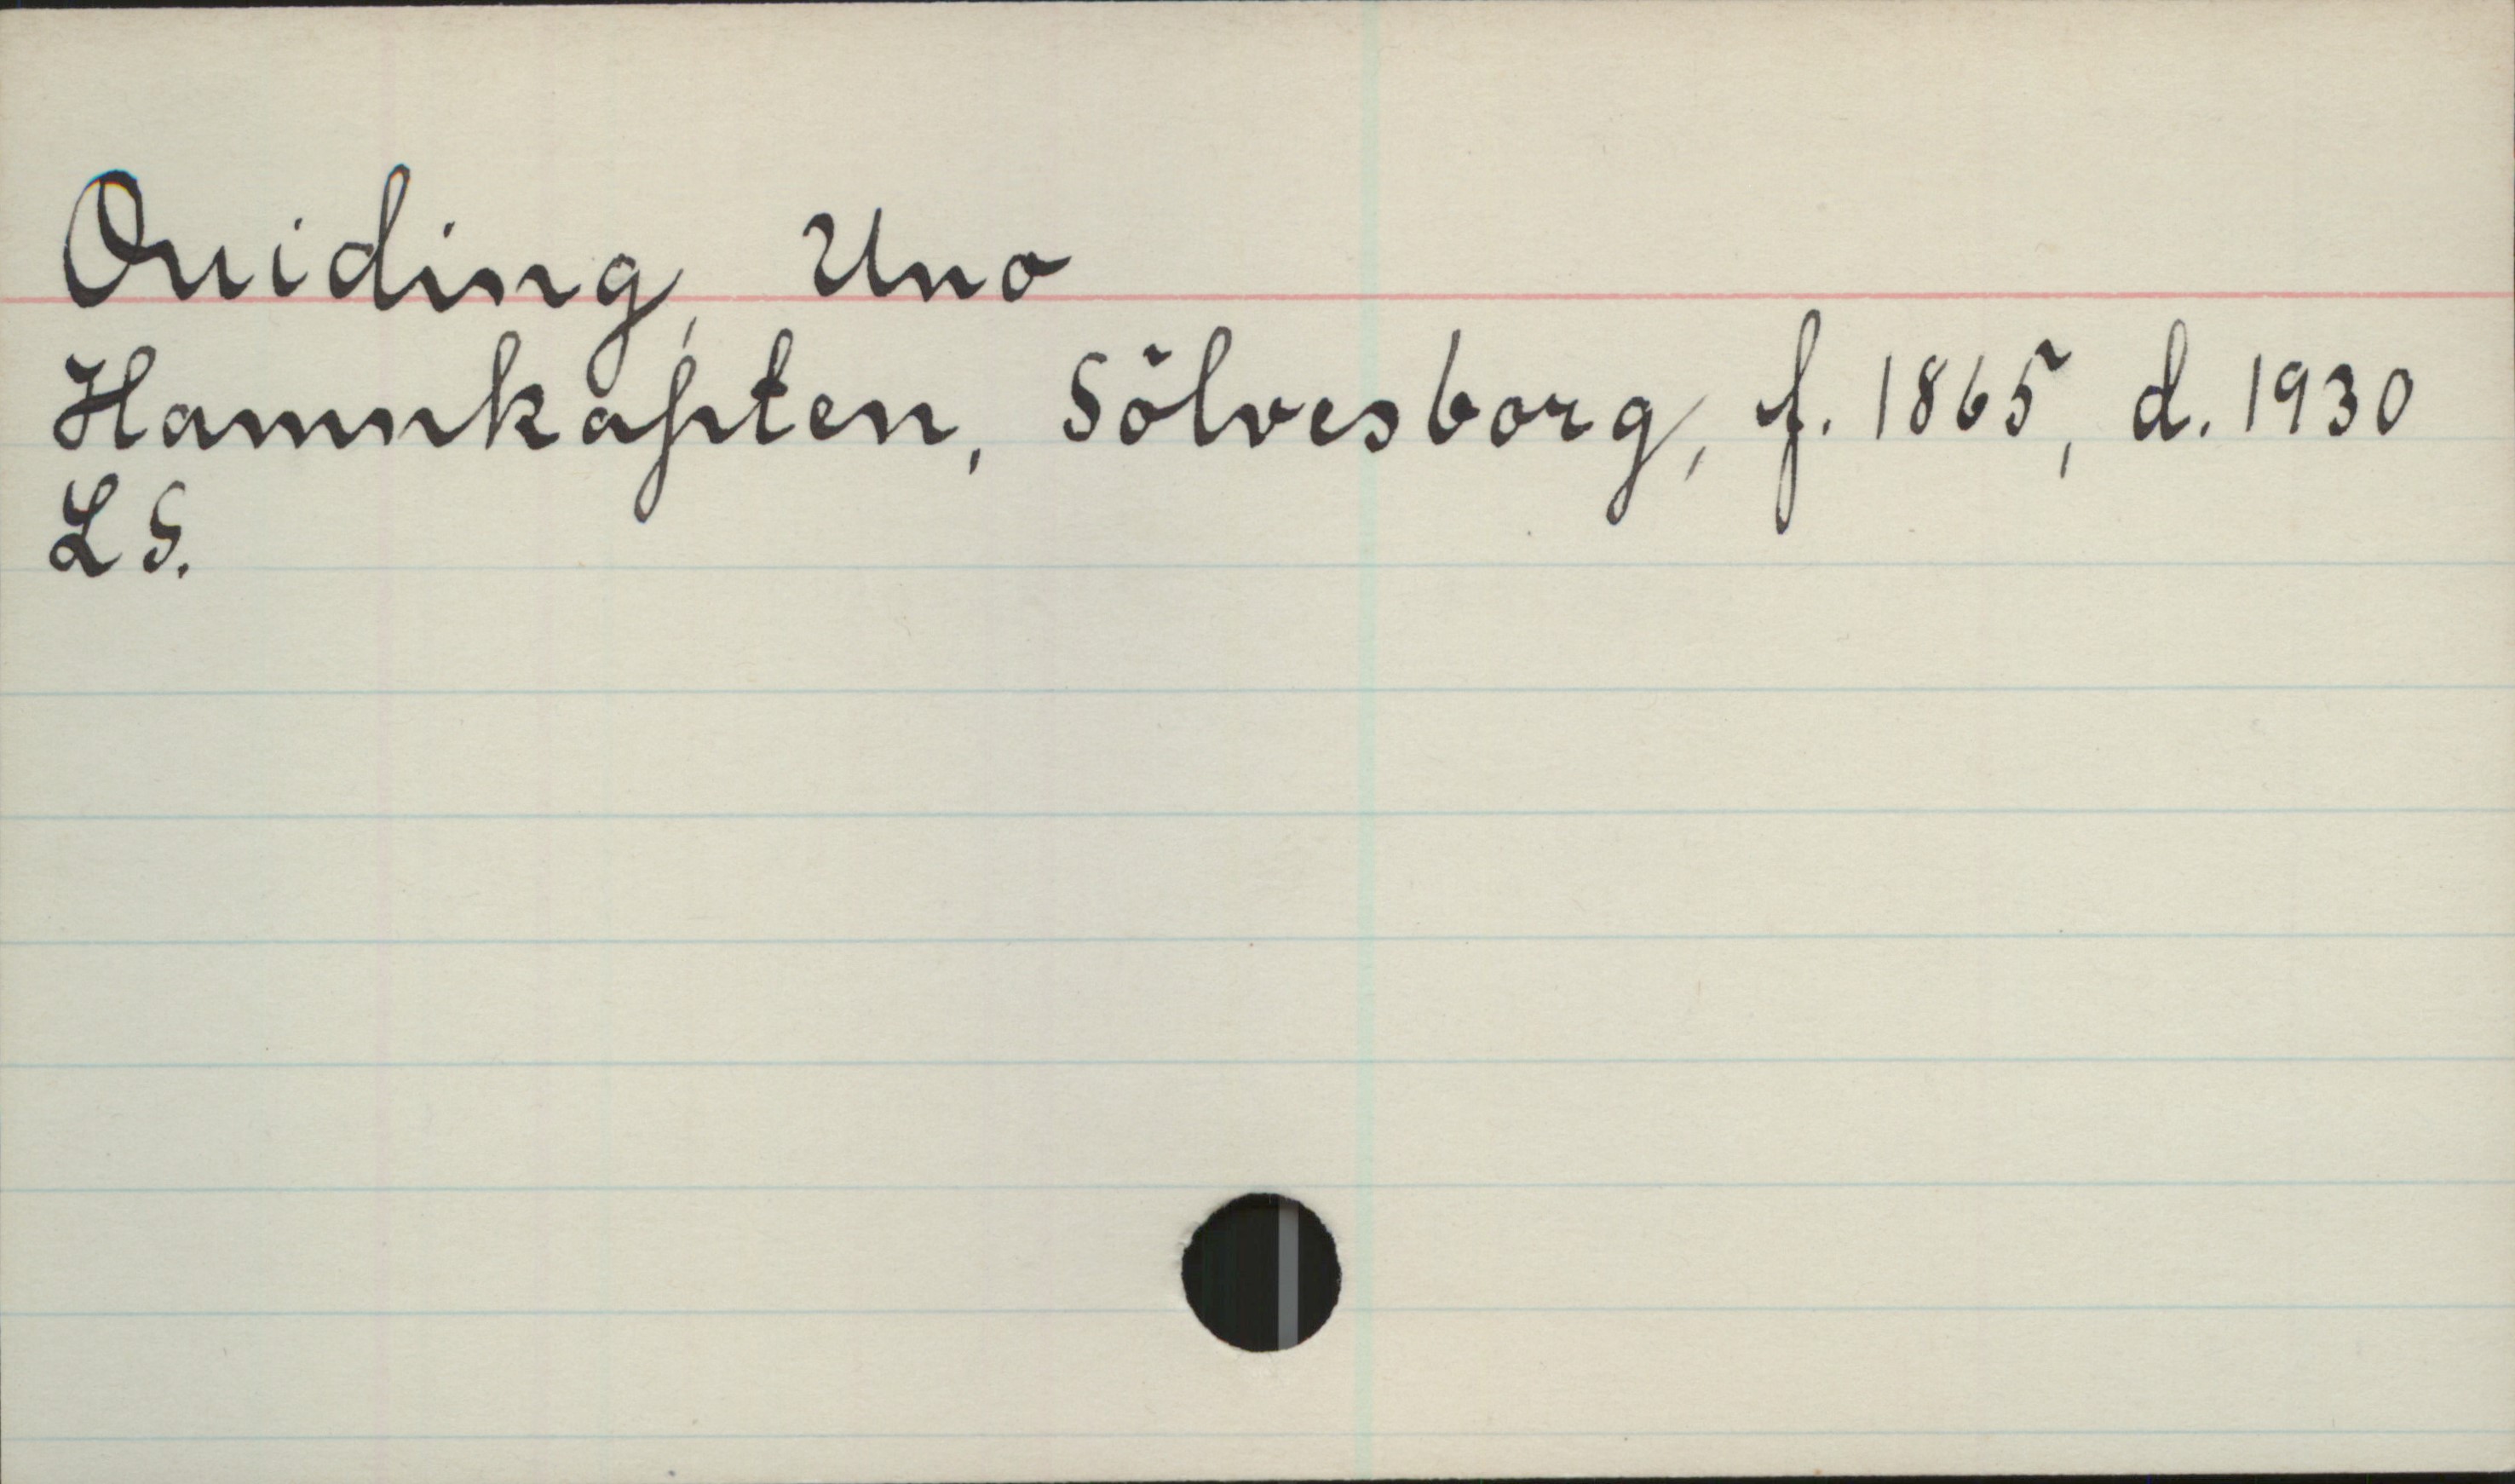 Quiding, Uno
Hamnkapten, Sölvesborg, f. 1865, d. 1930
L S.